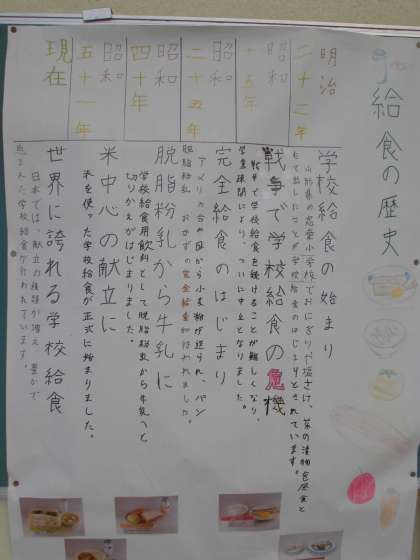 給食の歴史
明治二十二年
学校給食の始まり
山形県の忠愛小学校でおにぎりや塩ざけ、菜の漬物を昼食と
して出したことが学校給食のはじまりとされています。
昭和十五年
戦争で学校給食の危機
戦争で学校給食を続けることが難しくなり、
学童疎開により、ついに中止となりました。
昭和二十五年
完全給食のはじまり
アメリカ合衆国から小麦粉が送られ、パン
脱脂粉乳 おかずの完全給食が行われました。
昭和四十年
脱脂粉乳から牛乳に
学校給食用飲料として脱脂粉乳から牛乳へと
切りかえがはじまりました。
昭和五十一年
米中心の献立に
米を使った学校給食が正式に始まりました。
現在
世界に誇れる学校給食
日本では、献立の種類が増え、豊かで
した学校給食が行われています。